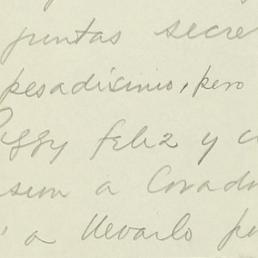 juntas secre
pesadísimo, pero
Peggy feliz y c
sion a Covad
a llevarlo pe